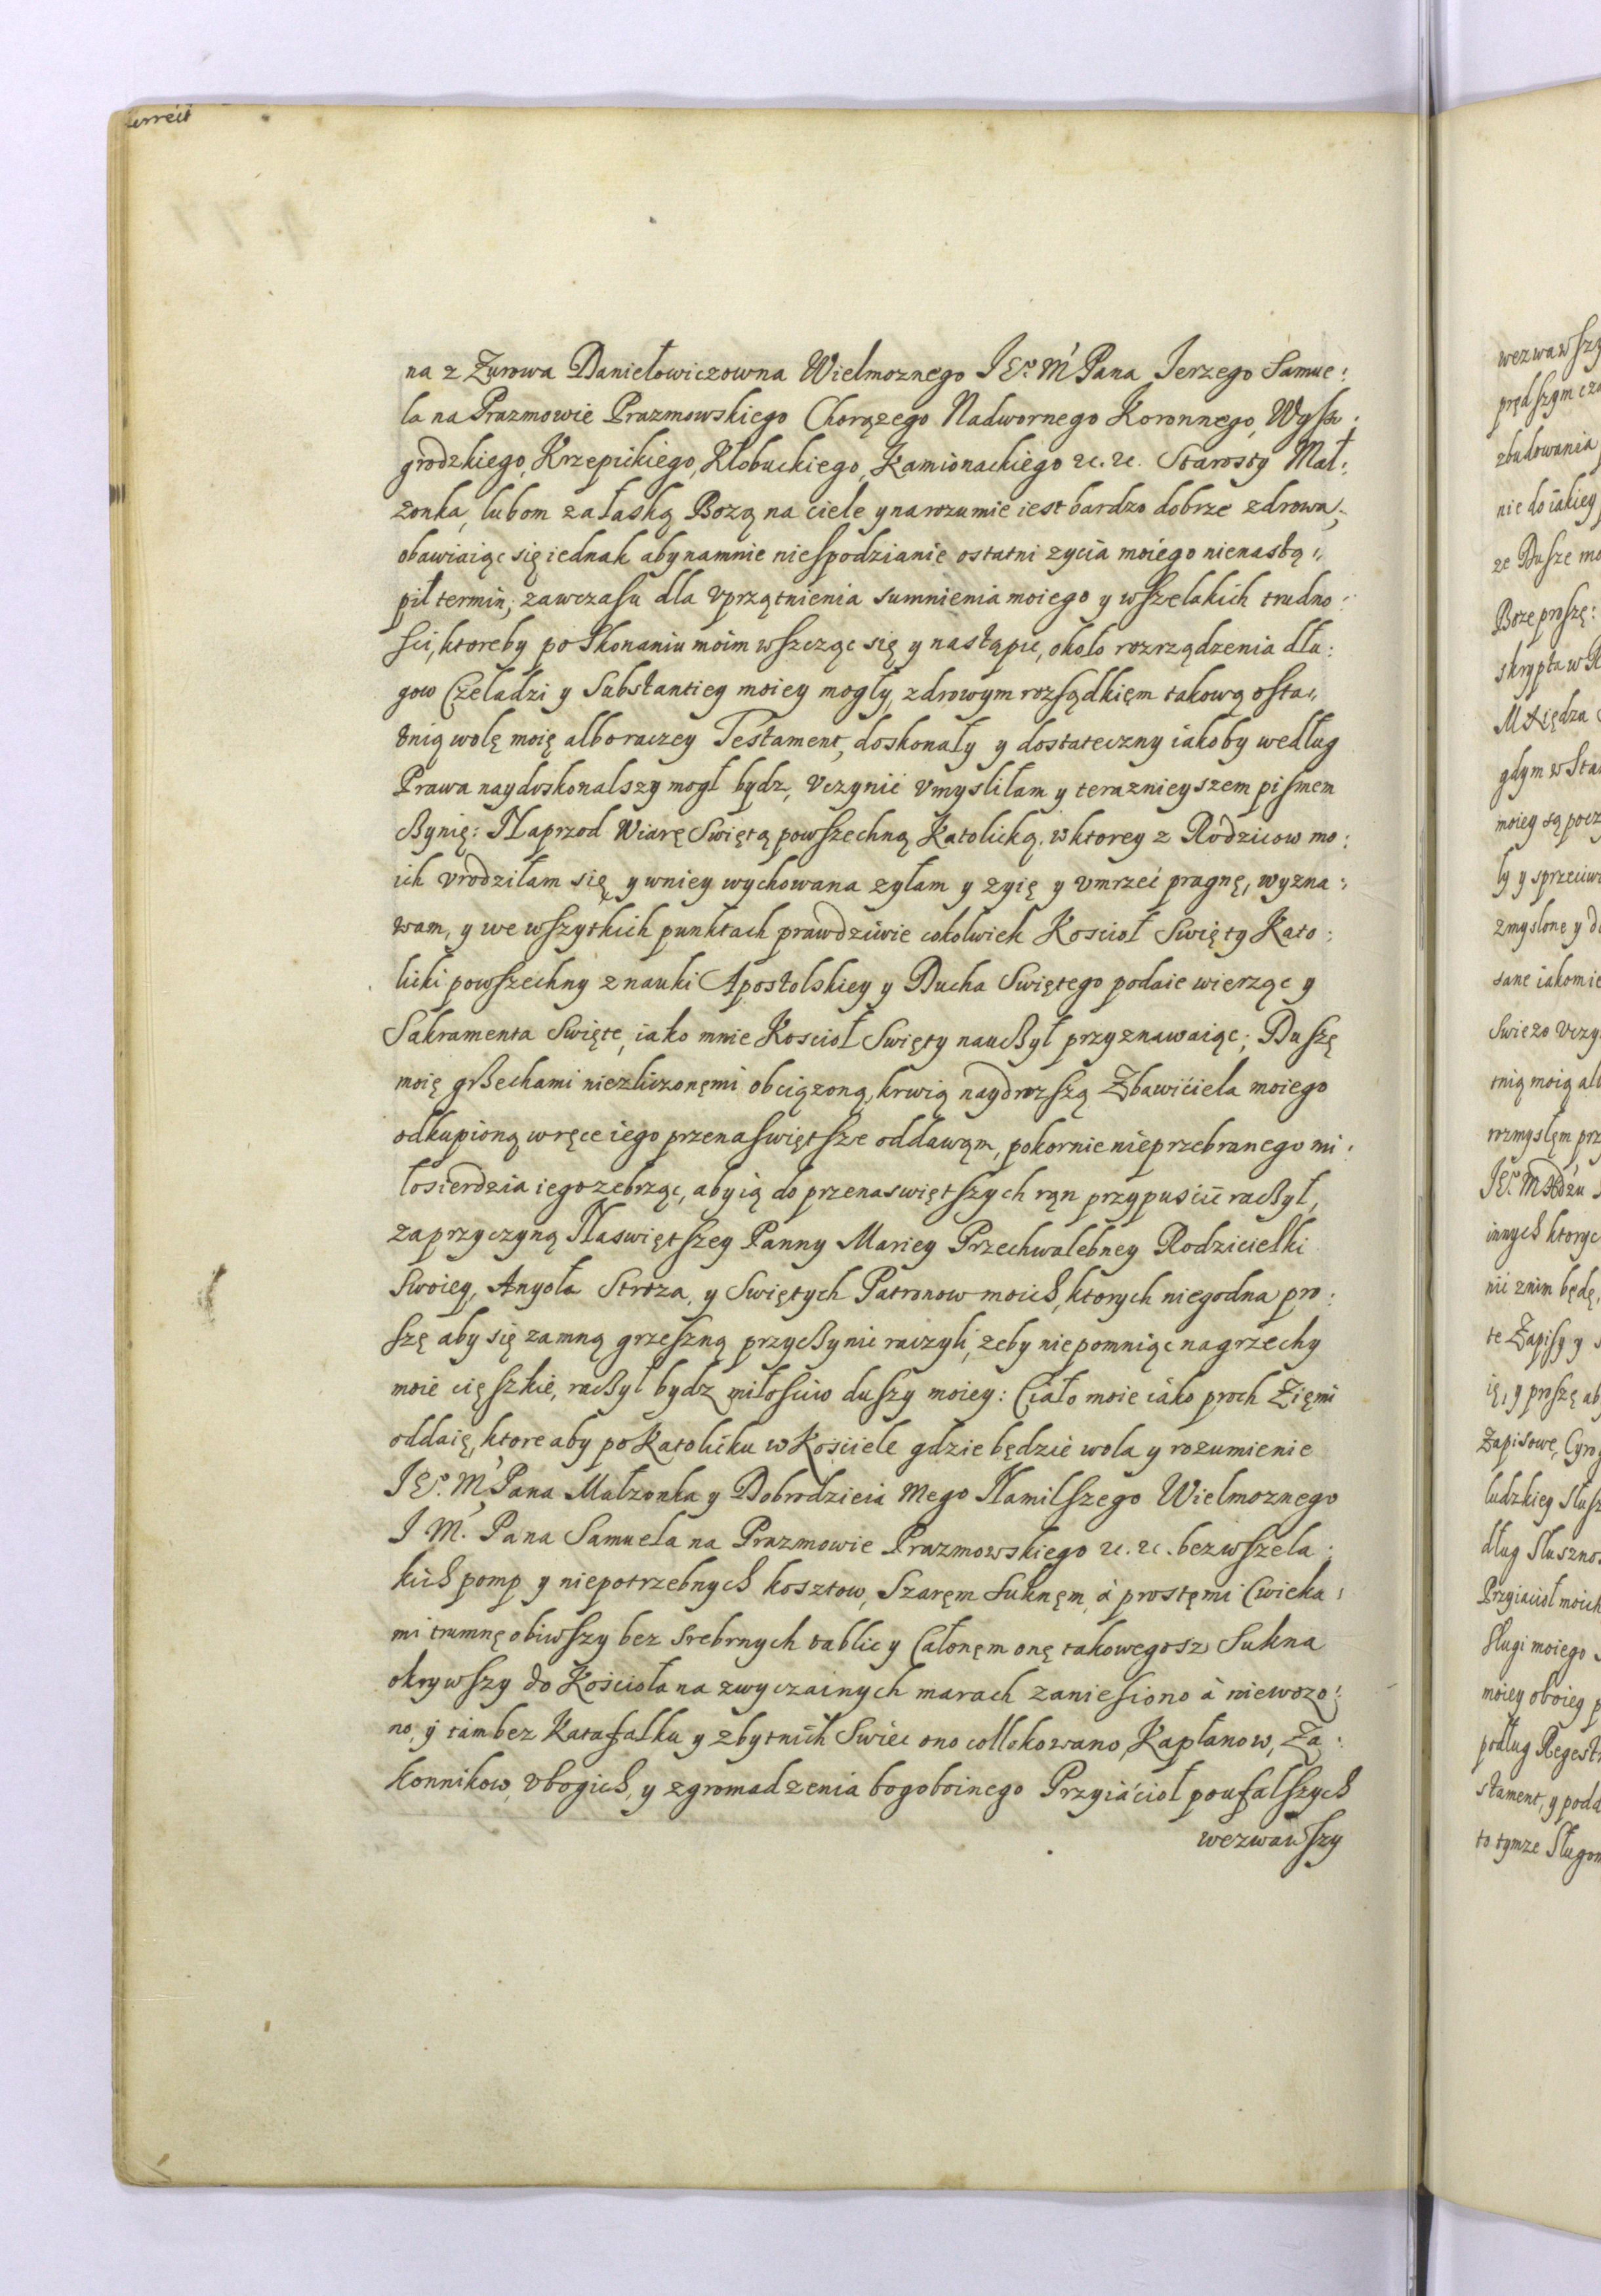 na z Zurowa Daniełowiczowna Wielmoznego JEo. M Pana Jerzego Samue:
la na Prazmowie Prazmowskiego Chorązego Nadwornego Koronnego, Wysz:
grodzkiego, Krzepickiego, Kłobuckiego, Kamionackiego &c. &c. Starosty Mał:
zonka, lubom za łaską Bozą na ciele y na rozumie iest bardzo dobrze zdrowa,
obawiaiąc się iednak aby na mnie niespodzianie ostatni zycia moiego nienastą:
pił termin; zawczasu dla vprzątnienia sumnienia moiego y wszelakich trudno:
sci, ktoreby po skonaniu moim wszcząc się y nastąpic, około rozrządzenia dłu:
gow Czeladzi y Substantiey moiey mogły, zdrowym rozsądkięm takową osta:
tnią wolę moię albo raczey Testament, doskonały y dostateczny iakoby według
Prawa naydoskonalszy mogł bydz, vczynić vmysliłam y teraznieyszem pismem
czynię: Naprzod Wiarę Swiętą powszechną Katolicką, w ktorey z Rodzicow mo:
ich vrodziłam się y w niey wychowana zyłam y zyię y vmrzeć pragnę, wyzna:
wam, y we wszytkich punktach prawdziwie cokolwiek Koscioł Swięty Kato:
licki powszechny z nauki Apostolskiey y Ducha Swiętego podaie wierząc y
Sakramenta Swięte, iako mnie Koscioł Swięty nauczył przyznawaiąc; Duszę
moię grzechami niezliczonęmi obciązoną, krwią naydrozszą Zbawićiela moiego
odkupioną w ręce iego przenaswiętsze oddawąm, pokornie nieprzebranego mi:
łosierdzia iego zebrząc, aby ią do przenaswiętszych rąn przypuscić raczył,
za przyczyną Naswiętszey Panny Mariey Przechwalebney Rodzicielki
Swoiey, Anyoła Stroza, y Swiętych Patronow moich, ktorych niegodna pro:
szę aby się zamną grzeszną przyczynic raczyli, zeby niepomniąc na grzechy
moie cięszkie, raczył bydz miłosciw duszy moiey: Ciało moie iako proch Zięmi
oddaię, ktore aby po Katolicku w Kosciele gdzie będzie wola y rozumienie
JEo. M Pana Małzonka y Dobrodzieia mego Namilszego Wielmoznego
J M. Pana Samuela na Prazmowie Prazmowskiego &c. &c. bez wszela:
kich pomp y niepotrzebnych kosztow, Szaręm Suknęm, à prostęmi Cwieka:
mi trumnę obiwszy bez srebrnych tablic y Całonęm onę takowegosz Sukna
okrywszy do Kościoła na zwyczainych marach zaniesiono à niewozo:
no, y tam bez Katafalku y zbytnich Swiec ono collokowano, Kapłanow, Za:
konnikow, vbogich, y zgromadzenia bogoboinego Przyiáćioł poufalszych
wezwawszy
wezwawszy
zbudowania
nie do iakiey
ze Dusze mo
Boze proszę:
moiey są pocz
zmyslone y
te Zapisy y
ię, y proszę ab
Przyiacioł moich
Sługi moiego
moiey oboiey p
podług Regest
stament, y poda
to tymze Sługom